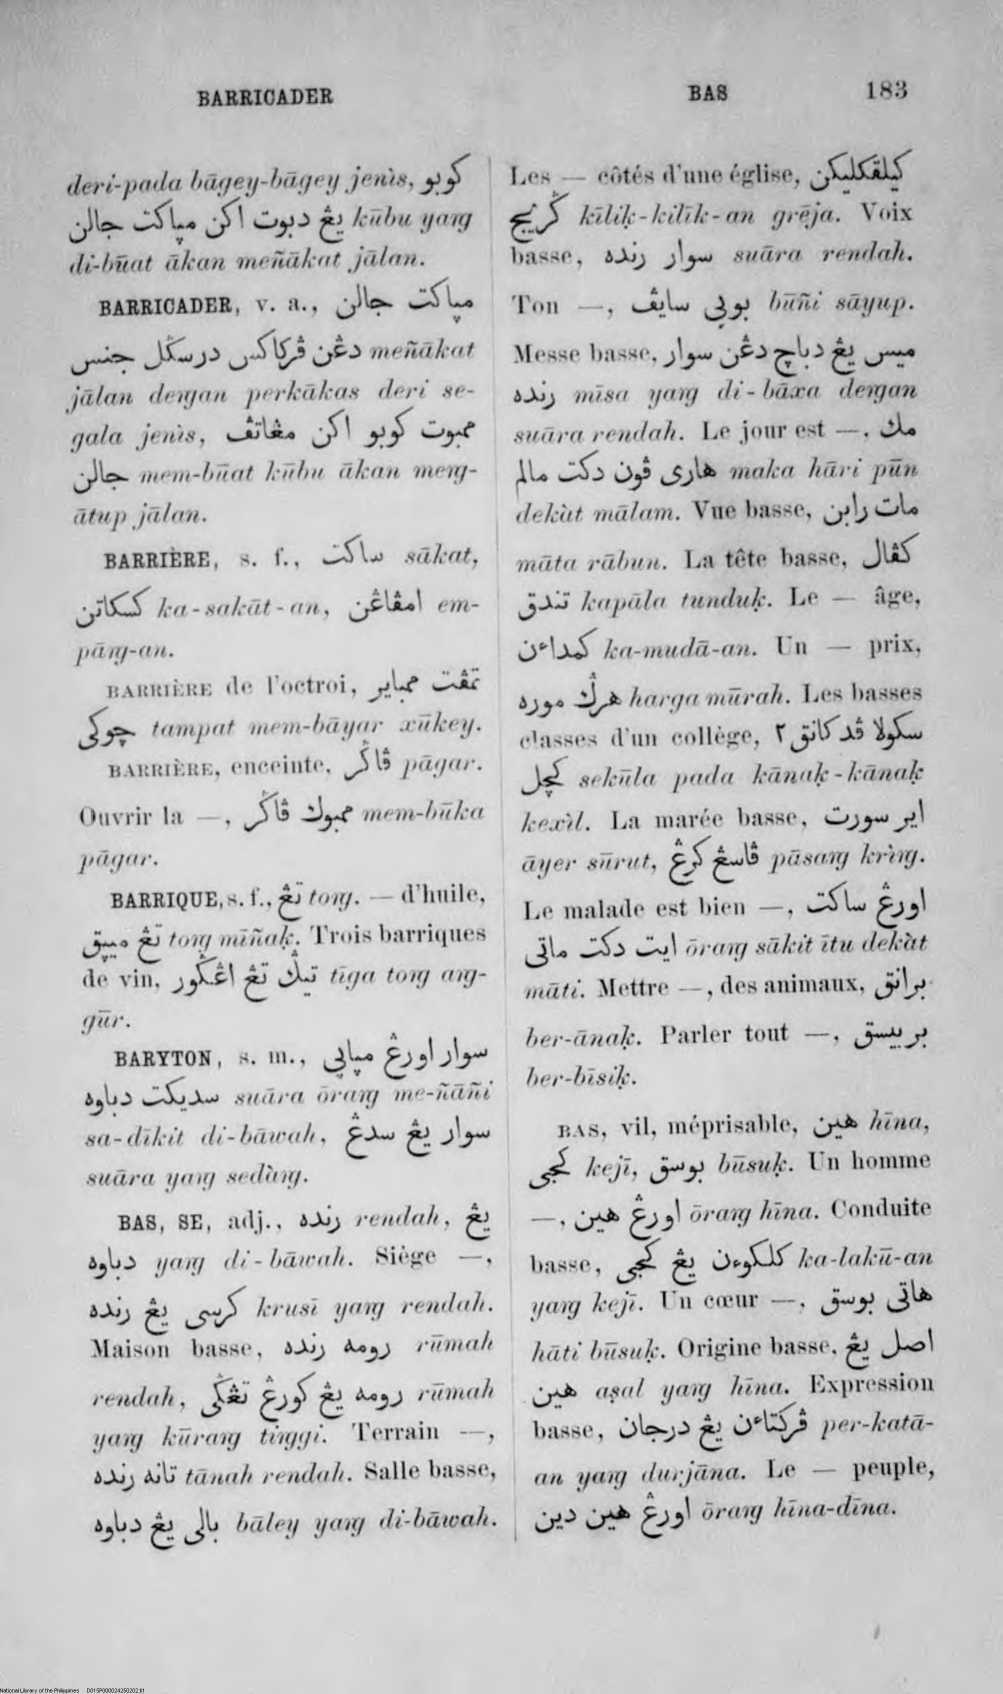 BARRICADER
BAS
183
deri-pada bāgey-bāgey jenìs, كوبو
يڠ دبوت اكن مپاكت جالن kūbu yaŋ
di-būat ākan meñākat jālan.
BARRICADER, v. a., مپاكت جالن
دڠن ڤركاكس درسڬل جنس meñākat
jālan deŋan perkākas deri se-
gala jenìs, ممبوت كوبو اكن مڠاتڤ
جالن mem-būat kūbu ākan meŋ-
ātup jālan.
BARRIÈRE, s. f., ساكت sākat,
كسكاتن ka-sakāt-an, امڤاڠن em-
pāŋ-an.
BARRIÈRE de l'octroi, تمڤت ممباير
چوكى tampat mem-bāyar xūkey.
BARRIÈRE, enceinte, ڤاڬر pāgar.
Ouvrir la —, ممبوك ڤاڬر mem-būka
pāgar.
BARRIQUE, s. f., تڠ toŋ. — d'huile,
تڠ ميپق toŋ mīñaḳ. Trois barriques
de vin, تيڬ تڠ اڠڬور tīga toŋ aŋ-
gūr.
BARYTON, s. m., سوار اورڠ مپاپي
سديكت دباوه suāra ōraŋ me-ñāñi
sa-dīkit di-bāwah, سوار يڠ سدڠ
suāra yaŋ sedàŋ.
BAS, SE, adj., رنده rendah, يڠ
دباوه yaŋ di-bāwah. Siège —,
كرسى يڠ رنده krusī yaŋ rendah.
Maison basse, رومه رنده rūmah
rendah, رومه يڠ كورڠ تڠڬى rūmah
yaŋ kūraŋ tiŋgi. Terrain —,
تانه رنده tānah rendah. Salle basse,
بالى يڠ دباوه bāley yaŋ di-bāwah.
Les — côtés d'une église, كيلقكليكن
ڬريج kīliḳ-kilīk-an grēja. Voix
basse, سوار رنده suāra rendah.
Ton —, بوپي سايڤ būñi sāyup.
Messe basse, ميس يڠ دباچ دڠن سوار
رنده mīsa yaŋ di-bāxa deŋan
suāra rendah. Le jour est —, مك
هارى ڤون دكت مالم maka hāri pūn
dekàt mālam. Vue basse, مات رابن
māta rābun. La tête basse, كڤال
تندق kapāla tunduḳ. Le — âge,
كمداءن ka-mudā-an. Un — prix,
هرڬ موره harga mūrah. Les basses
classes d'un collège, سكولا ڤد كانق٢
كچل sekūla pada kānaḳ-kānaḳ
kexìl. La marée basse, اير سورت
āyer sūrut, ڤاسڠ كرڠ pāsaŋ krìŋ.
Le malade est bien —, اورڠ ساكت
ايت دكت ماتى ōraŋ sākit ītu dekàt
māti. Mettre —, des animaux, برانق
ber-ānaḳ. Parler tout —, بربيسق
ber-bīsiḳ.
BAS, vil, méprisable, هين hīna,
كجى kejī, بوسق būsuḳ. Un homme
—, اورڠ هين ōraŋ hīna. Conduite
basse, كلكوءن يڠ كجى ka-lakū-an
yaŋ kejī. Un cœur —, هاتى بوسق
hāti būsuḳ. Origine basse, اصل يڠ
هين aṣal yaŋ hīna. Expression
basse, ڤركتاءن يڠ درجان per-katā-
an yaŋ durjāna. Le — peuple,
اورڠ هين دين ōraŋ hīna-dīna.
National Library of the Philippines